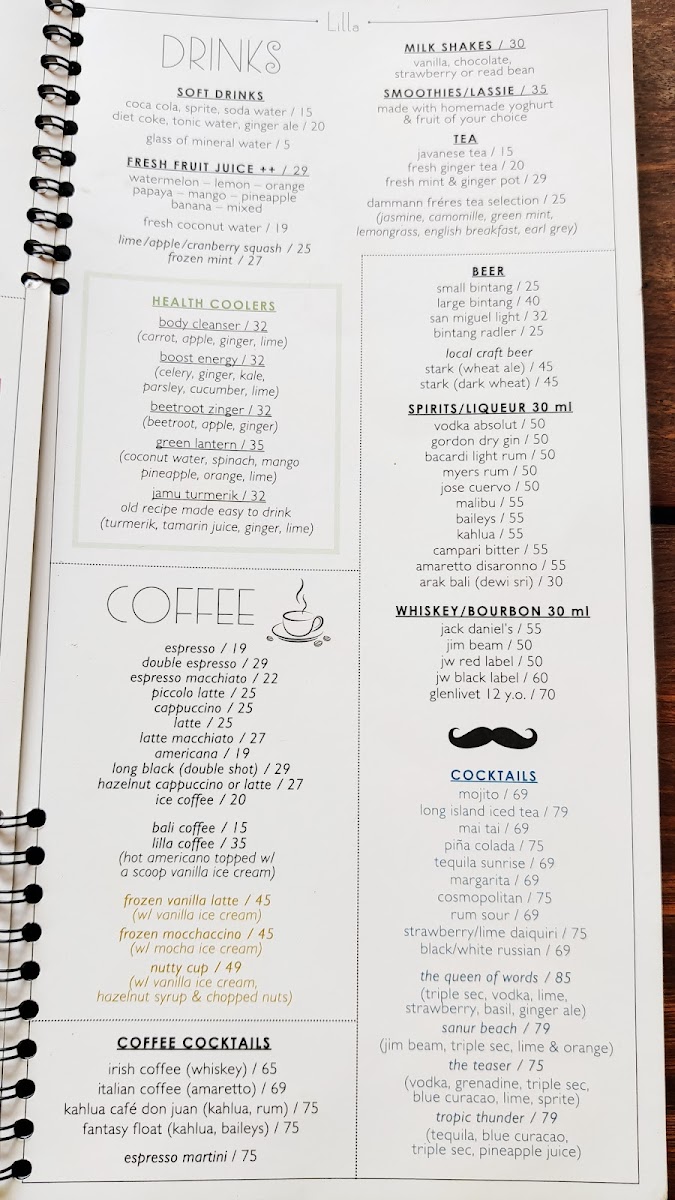 Lilla
DRINKS
SOFT DRINKS
coca cola, sprite, soda water / 15
diet coke, tonic water, ginger ale / 20
glass of mineral water / 5
FRESH FRUIT JUICE ++ / 29
watermelon – lemon – orange
papaya – mango – pineapple
banana – mixed
fresh coconut water / 19
lime/apple/cranberry squash / 25
frozen mint / 27
HEALTH COOLERS
body cleanser / 32
(carrot, apple, ginger, lime)
boost energy / 32
(celery, ginger, kale,
parsley, cucumber, lime)
beetroot zinger / 32
(beetroot, apple, ginger)
green lantern / 35
(coconut water, spinach, mango
pineapple, orange, lime)
jamu turmerik / 32
old recipe made easy to drink
(turmerik, tamarin juice, ginger, lime)
COFFEE
espresso / 19
double espresso / 29
espresso macchiato / 22
piccolo latte / 25
cappuccino / 25
latte / 25
latte macchiato / 27
americana / 19
long black (double shot) / 29
hazelnut cappuccino or latte / 27
ice coffee / 20
bali coffee / 15
lilla coffee / 35
(hot americano topped w/
a scoop vanilla ice cream)
frozen vanilla latte / 45
(w/ vanilla ice cream)
frozen mocchaccino / 45
(w/ mocha ice cream)
nutty cup / 49
(w/ vanilla ice cream,
hazelnut syrup & chopped nuts)
COFFEE COCKTAILS
irish coffee (whiskey) / 65
italian coffee (amaretto) / 69
kahlua café don juan (kahlua, rum) / 75
fantasy float (kahlua, baileys) / 75
espresso martini / 75
MILK SHAKES / 30
vanilla, chocolate,
strawberry or read bean
SMOOTHIES/LASSIE / 35
made with homemade yoghurt
& fruit of your choice
TEA
javanese tea / 15
fresh ginger tea / 20
fresh mint & ginger pot / 29
dammann fréres tea selection / 25
(jasmine, camomille, green mint,
lemongrass, english breakfast, earl grey)
BEER
small bintang / 25
large bintang / 40
san miguel light / 32
bintang radler / 25
local craft beer
stark (wheat ale) / 45
stark (dark wheat) / 45
SPIRITS/LIQUEUR 30 ml
vodka absolut / 50
gordon dry gin / 50
bacardi light rum / 50
myers rum / 50
jose cuervo / 50
malibu / 55
baileys / 55
kahlua / 55
campari bitter / 55
amaretto disaronno / 55
arak bali (dewi sri) / 30
WHISKEY/BOURBON 30 ml
jack daniel's / 55
jim beam / 50
jw red label / 50
jw black label / 60
glenlivet 12 y.o. / 70
COCKTAILS
mojito / 69
long island iced tea / 79
mai tai / 69
piña colada / 75
tequila sunrise / 69
margarita / 69
cosmopolitan / 75
rum sour / 69
strawberry/lime daiquiri / 75
black/white russian / 69
the queen of words / 85
(triple sec, vodka, lime,
strawberry, basil, ginger ale)
sanur beach / 79
(jim beam, triple sec, lime & orange)
the teaser / 75
(vodka, grenadine, triple sec,
blue curacao, lime, sprite)
tropic thunder / 79
(tequila, blue curacao,
triple sec, pineapple juice)